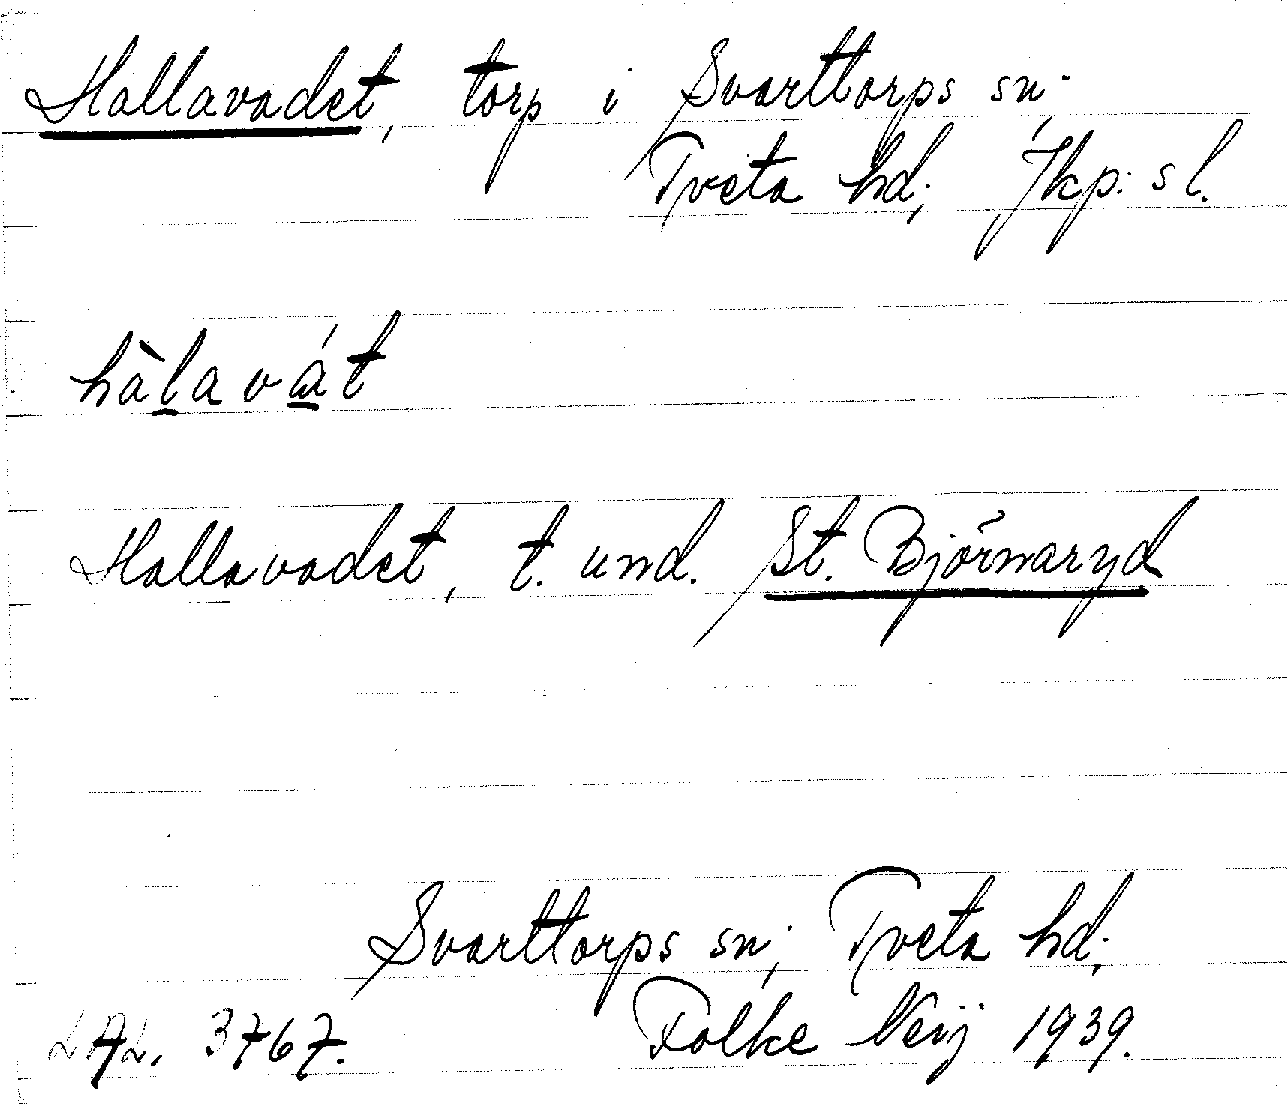 Hallavadet, torp i Svarttorps sn,
Tveta hd, Jkp: sl.
hàlavát
Hallavadet, t. und. St. Björnaryd
Svarttorps sn, Tveta hd,
LAL. 3767. Folke Neij 1939.